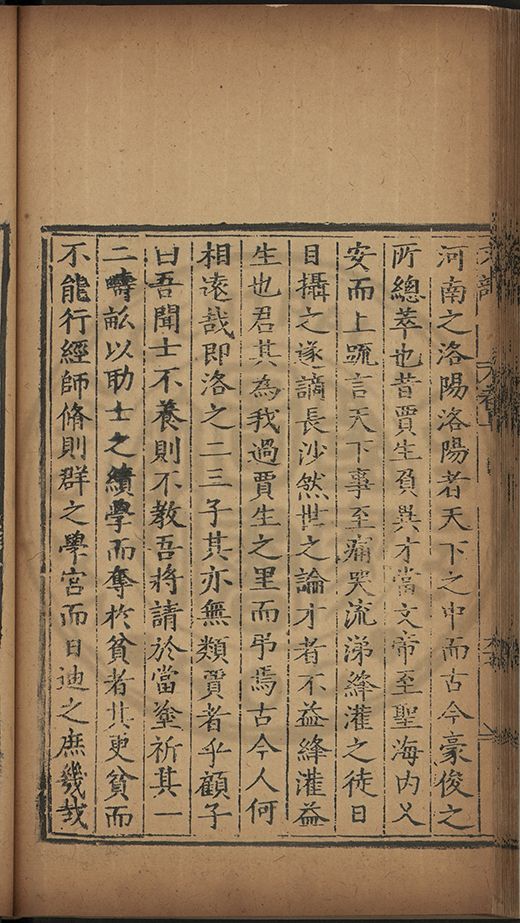 河南之洛陽洛陽者天下之中而古今豪俊之
所總萃也昔賈生負異才當文帝至聖海內乂
安而上䟽言天下事至痛哭流涕絳灌之徒日
目攝之遂謫長沙然世之論才者不益絳灌益
生也君其為我過賈生之里而弔焉古今人何
相遠哉即洛之二三子其亦無類賈者乎顧子
曰吾聞士不養則不教吾將請於當塗祈其一
二疇畝以助士之績學而奪於貧者其更貧而
不能行經師脩則群之學宮而日迪之庶幾哉